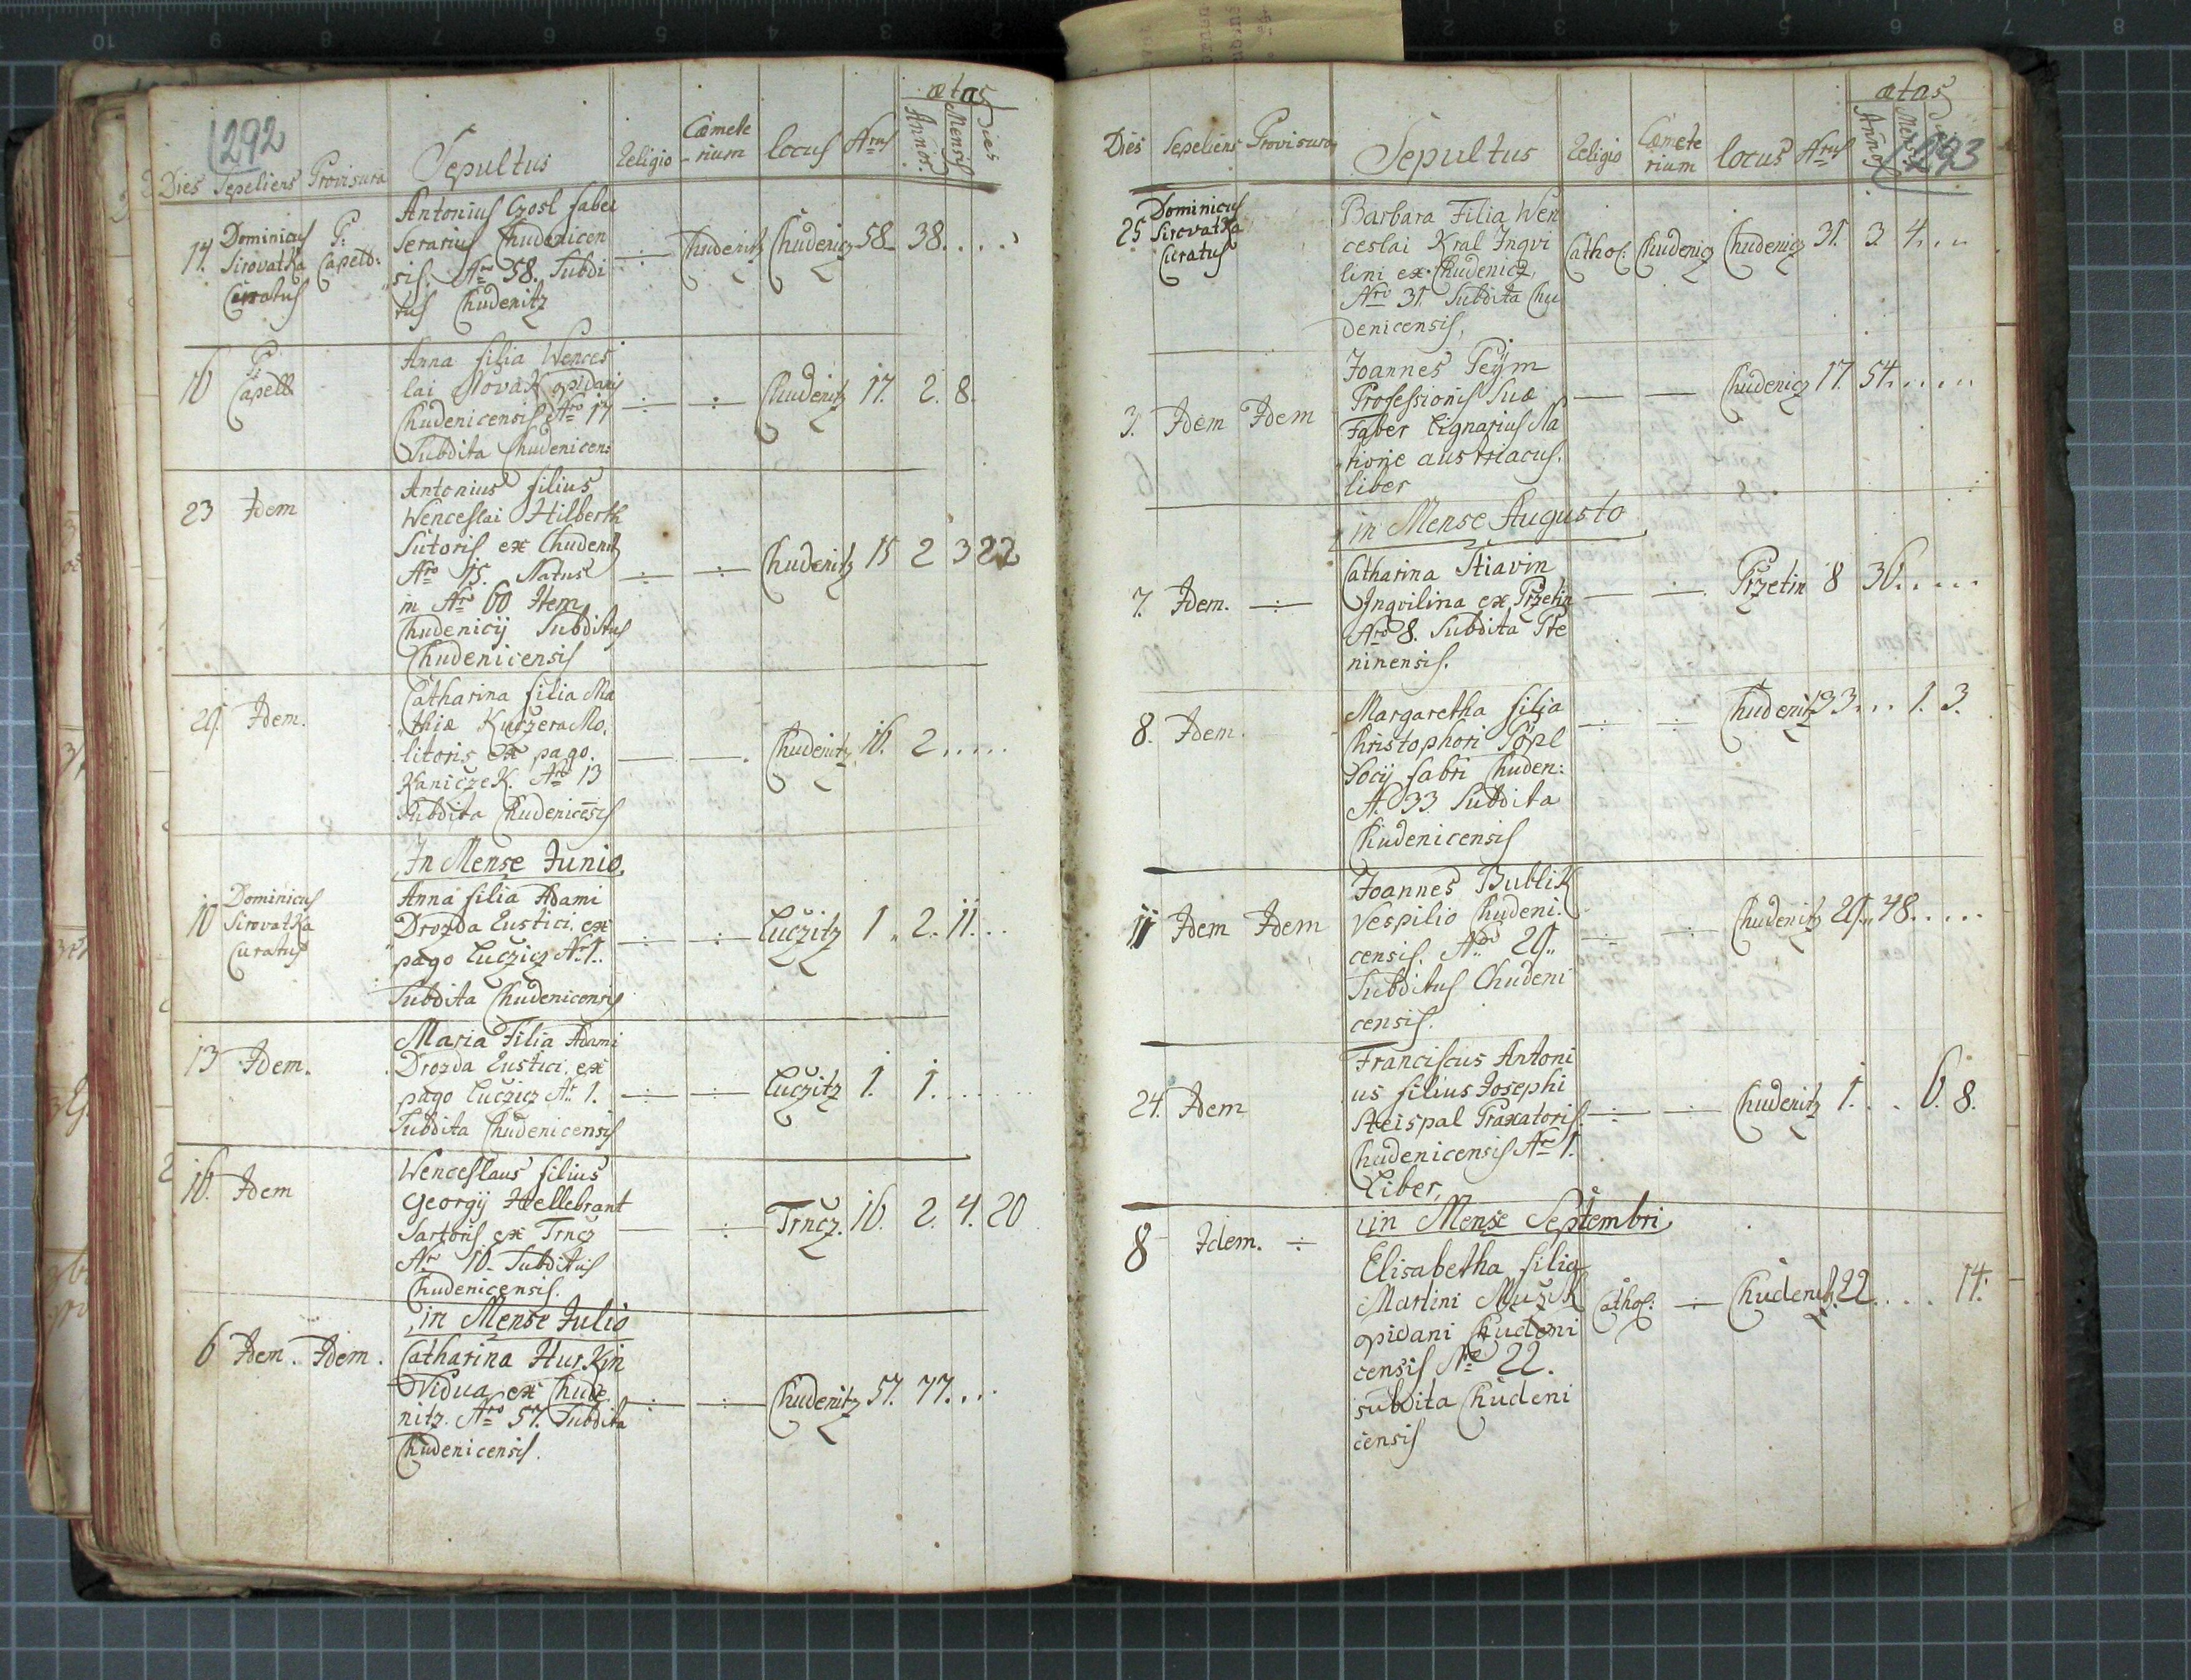 292
ætas
Dies Sepeliens Provisura Sepultus Religio Cæmete-rium locus Nrus Annor. Mensis Dies
14. Dominicus Sirovatka Curatus P: Capell:
Antonius Czosl faber
Serarius Chudenicen
sis. Nro 58. Subdi
tus Chudenitz
Chudenitz Chudenicz 58 38....
16 P: Capell
Anna filia Wences
lai Novak opidani
Chudenicensis Nro 17
Subdita Chudenicen:
Chudenitz 17. 2. 8.
23 Idem
Antonius filius
Wenceslai Hilberth
Sutoris ex Chudenitz
Nro 15. Natus
in Nro 60 Item
Chudenicij Subditus
Chudenicensis
Chudenitz 15 2 3 22
29. Idem.
Catharina filia Ma
thiæ Kuczera Mo
litoris ex pago
Kaniczek. Nro 13
Subdita Chudenicēsis
Chudenitz 16. 2.....
In Mense Junio.
10 Dominicus Sirovatka Curatus
Anna filia Adami
Drozda Rustici ex
pago Luczicz N. 1.
Subdita Chudenicensis
Luczitz 1. 2. 11...
13 Idem.
Maria Filia Adami
Drozda Rustici ex
pago Luczicz Nr. 1.
Subdita Chudenicensis
Luczitz 1. 1.....
16. Idem
Wenceslaus filius
Georgij Hellebrant
Sartoris ex Trncz
Nr. 16. Subditus
Chudenicensis.
Trncz. 16. 2. 4. 20
in Mense Julio
6 Idem. Idem.
Catharina Hurkin
Vidua ex Chude
nitz. Nro 57. Subdita
Chudenicensis.
Chudenitz 57. 77...
293
ætas
Dies Sepeliens Provisura Sepultus Religio Cæmete rium locus Nrus Annor Mensis
25 Dominicus Sirovatka Curatus
Barbara Filia Wen
ceslai Kral Inqvi
lini ex Chudenicz,
Nro 31 Subdita Chu
denicensis,
Cathol: Chudenicz Chudenicz 31. 3. 4...
3. Idem Idem
Joannes Peÿm
Professionis Suæ
Faber Lignarius Na
tione austriacus.
liber
Chudenicz 17. 54.....
in Mense Augusto
7. Idem.
Catharina Stiavin
Inqvilina ex Przetin
Nro 8. Subdita Ste
ninensis.
Przetin 8 36.....
8. Idem.
Margaretha filia
Christophori Pöpl
Socij fabri Chuden:
N. 33 Subdita
Chudenicensis
Chudenitz 33... 1. 3.
11 Idem Idem
Joannes Bublik
Vespilio Chudeni
censis. Nro. 29..
Subditus Chudeni
censis.
Chudenitz 29.. 48.....
24. Idem
Franciscus Antoni
us filius Josephi
Steispal Praxatoris
Chudenicensis Nro 1.
Liber,
Chudenitz 1... 6. 8.
in Mense Septembri
8 Idem.
Elisabetha filia
Martini Muzik
opidani Chudeni
censis Nro 22.
subdita Chudeni
censis
Cathol: Chudenitz 22.... 14.